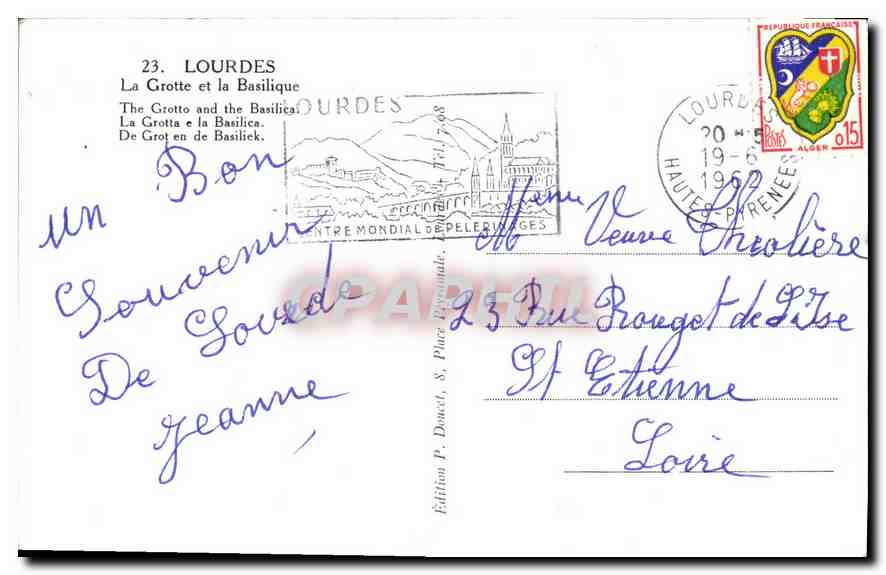 23. LOURDES
La Grotte et la Basilique
The Grotto and the Basilica.
La Grotta e la Basilica.
De Grot en de Basiliek.
un Bon
Souvenir
De Lourde
Jeanne
LOURDES
CENTRE MONDIAL DE PELERINAGES
Édition P. Doucet, 8, Place Peyramale, Lourdes. Tél. 7.98
LOURDES
20 H
19-6
1962
HAUTES-PYRENEES
REPUBLIQUE FRANÇAISE
POSTES
0,15
ALGER
Veuve Thiolière
23 Rue Rouget de L'Isle
St Etienne
Loire
CPARAMA